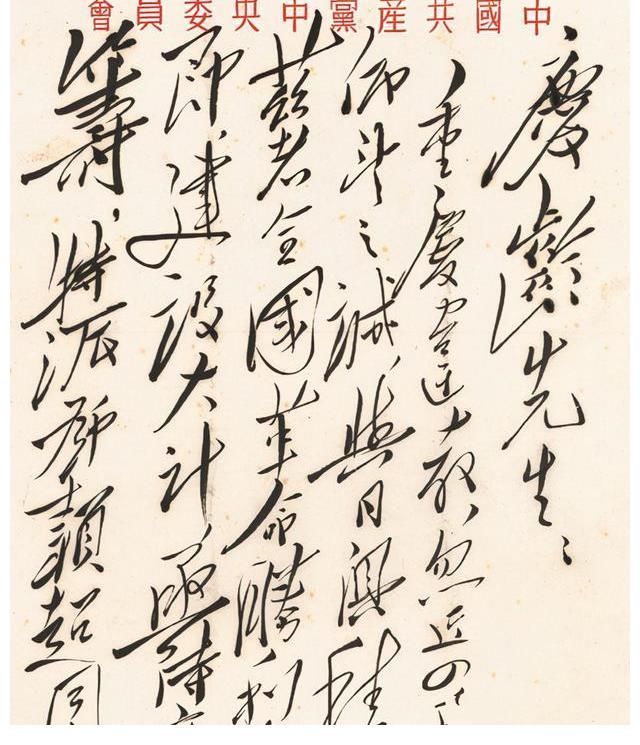 中國共産黨中央委員會
慶齡先生：
重慶違教，忽近四年
仰望之誠，與日俱積
茲者全國革命勝利
即，建設大計，亟待商
籌，特派鄧穎超同